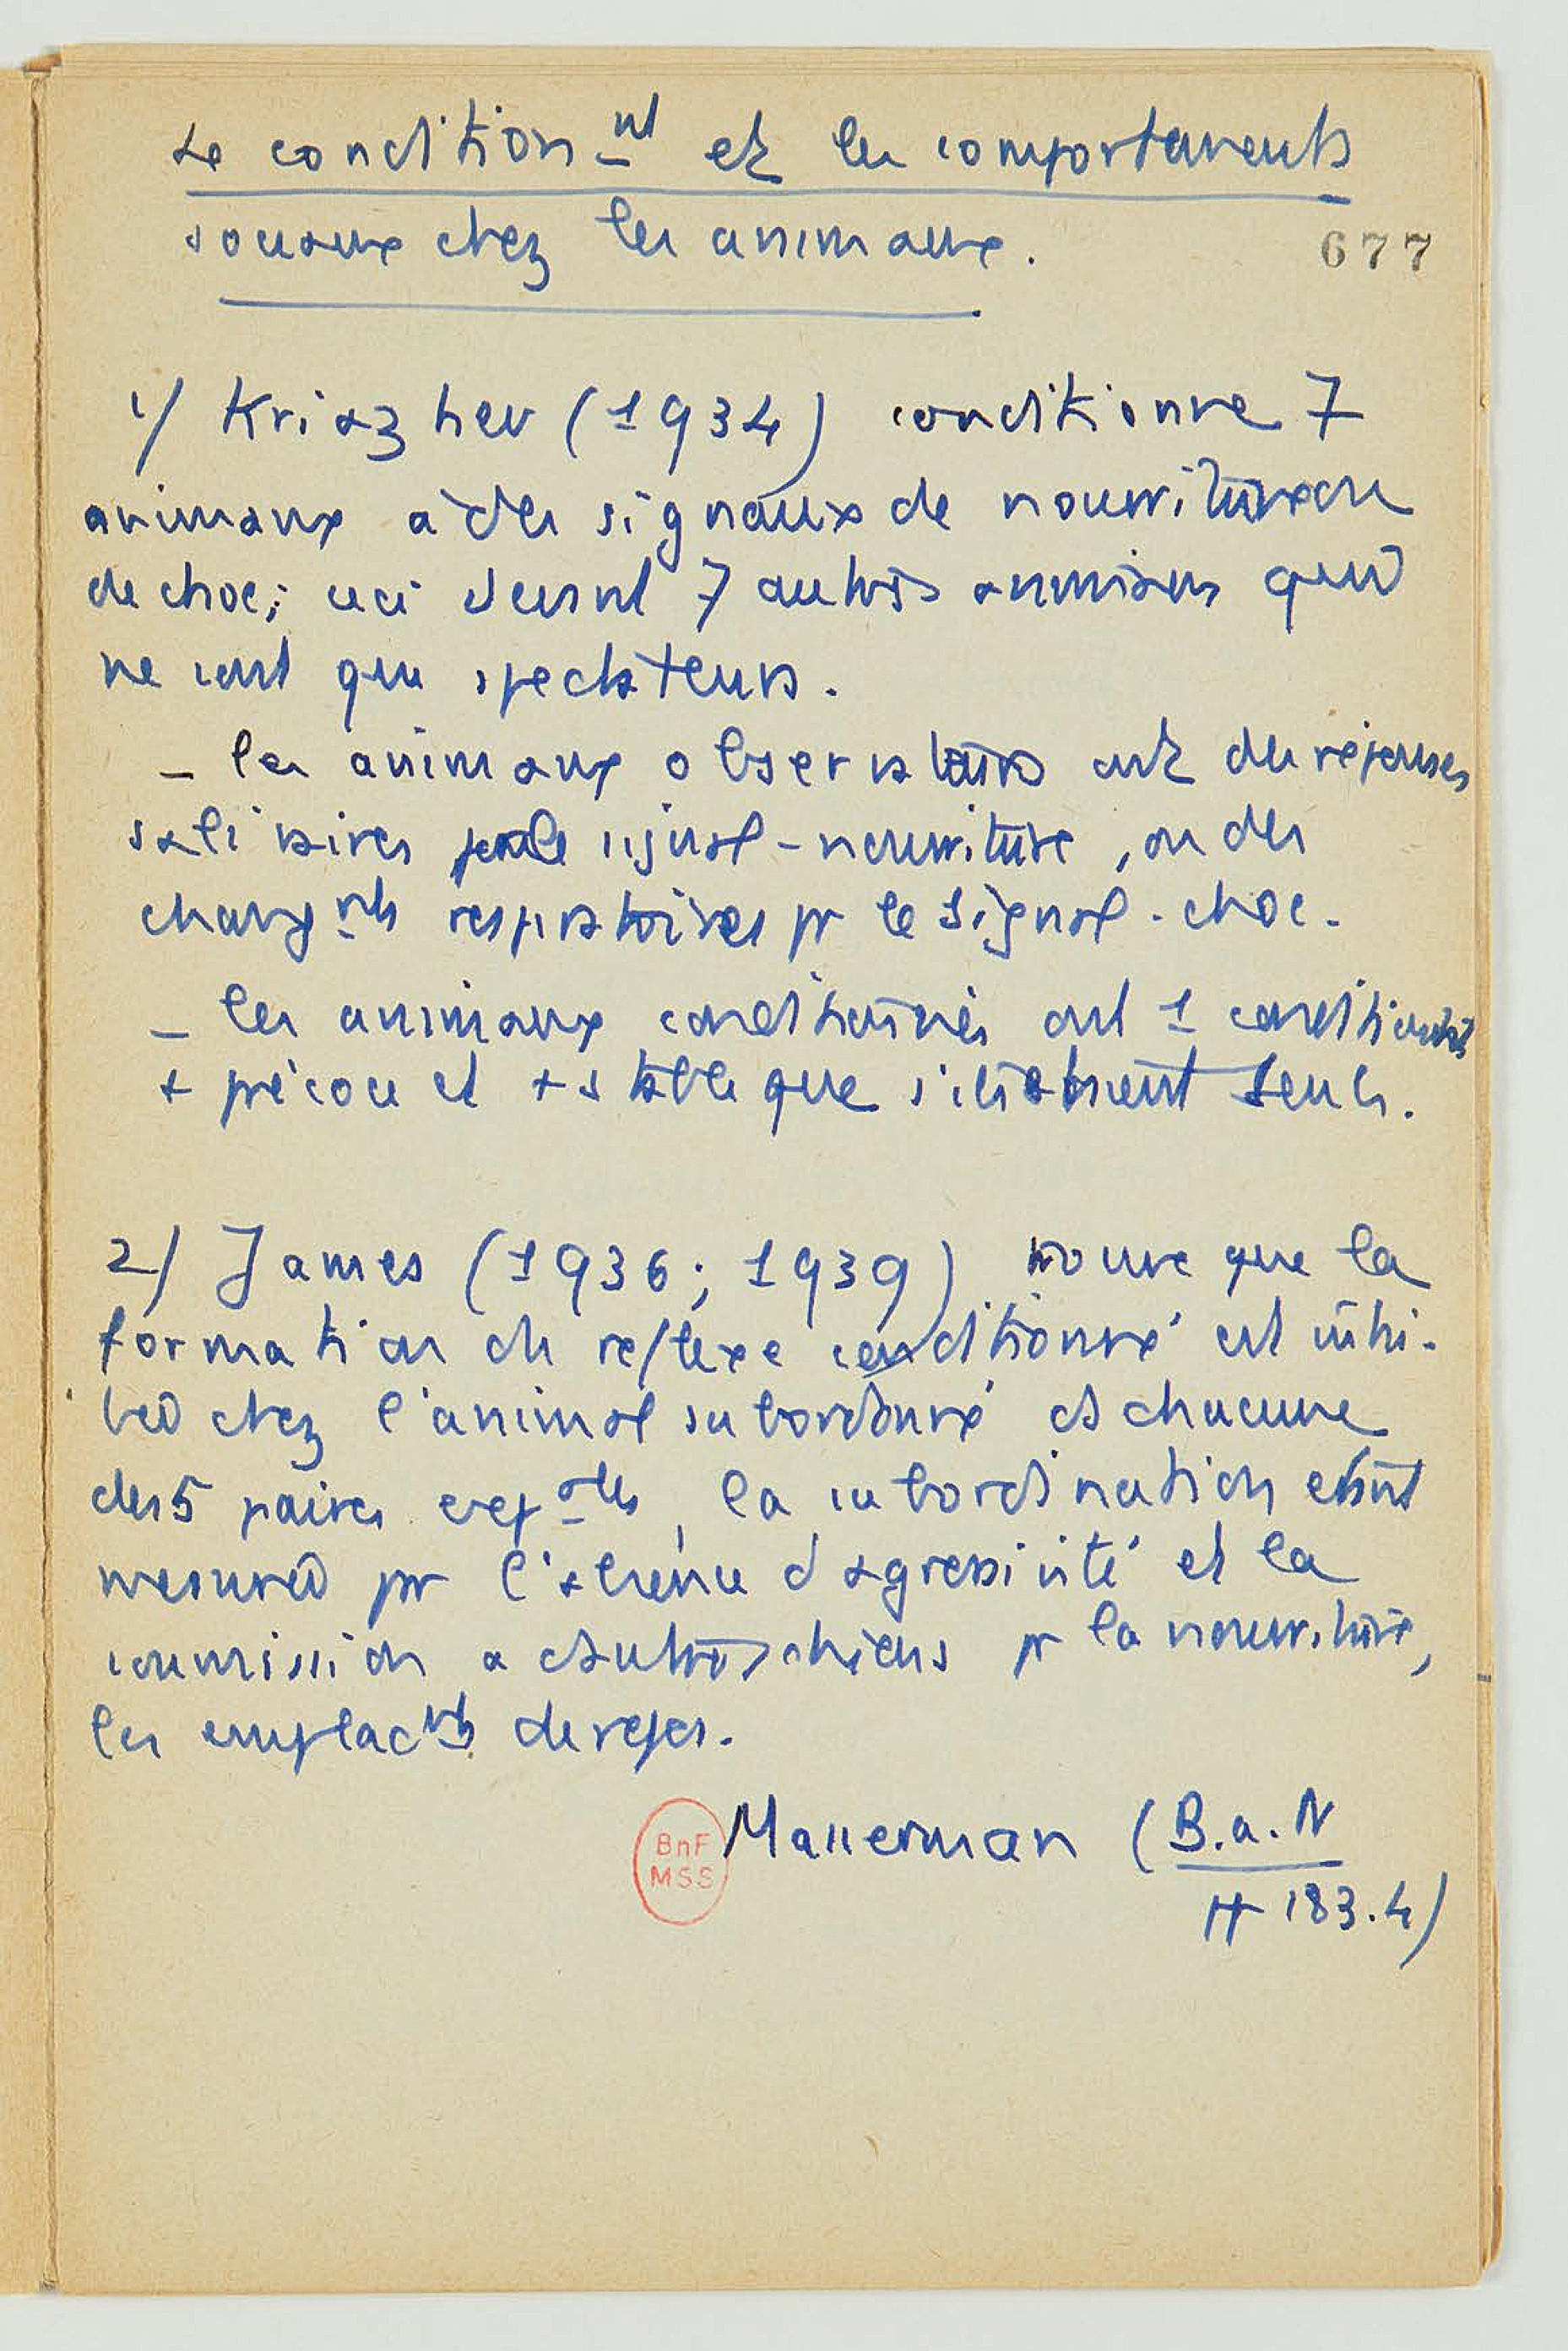 Le condition-nt et les comportements
sociaux chez les animaux.
677
1/ Kriazhev (1934) conditionne 7
animaux à des signaux de nourriture ou
de choc; ceci devant 7 autres animaux qui
ne sont que spectateurs.
- les animaux observateurs ont des réponses
salivaires pour le signal-nourriture, ou des
chang-nts respiratoires pr le signal-choc.
- les animaux conditionnés ont 1 conditionnt
+ précoce et + stable que s'ils étaient seuls.
2/ James (1936; 1939) trouve que la
formation du reflexe conditionné est inhi-
bée chez l'animal subordonné ds chacune
des 5 paires exp-ales, la subordination étant
mesurée pr l'absence d'agressivité et la
soumission a d'autres chiens pr la nourriture,
les emplacnts de repos.
BnF
MSS
Masserman (B.a.N
H 183.4)